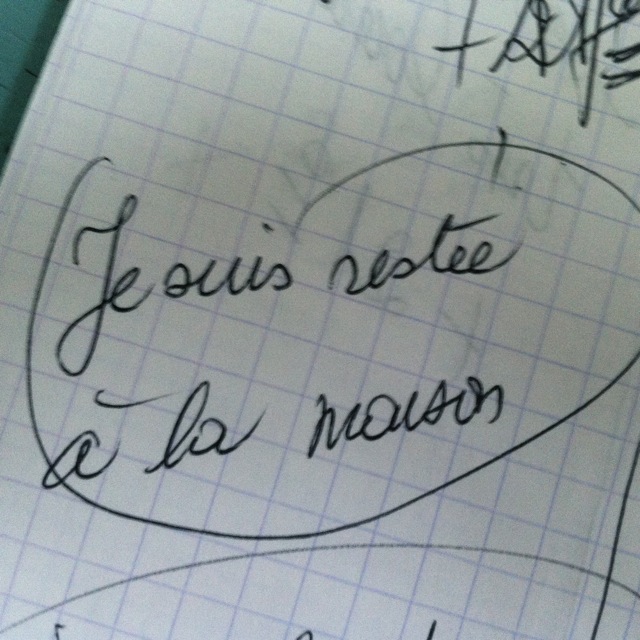 Je suis restée
à la maison